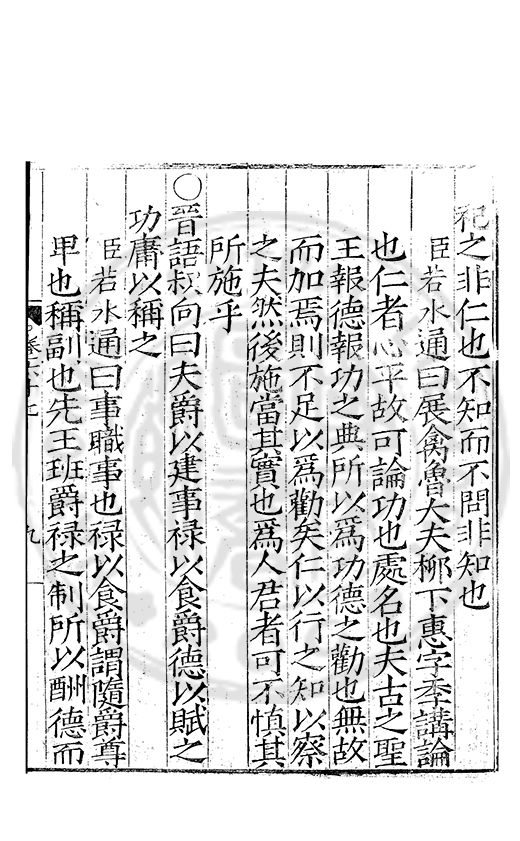 祀之非仁也不知而不問非知也
臣若水通曰展禽魯大夫柳下惠字季講論
也仁者心平故可論功也處名也夫古之聖
王報德報功之典所以爲功德之勸也無故
而加焉則不足以爲勸矣仁以行之知以察
之夫然後施當其實也爲人君者可不慎其
所施乎
○晉語叔向曰夫爵以建事禄以食爵德以賦之
功庸以稱之
臣若水通曰事職事也禄以食爵謂隨爵尊
卑也稱副也先王班爵禄之制所以酬德而
九